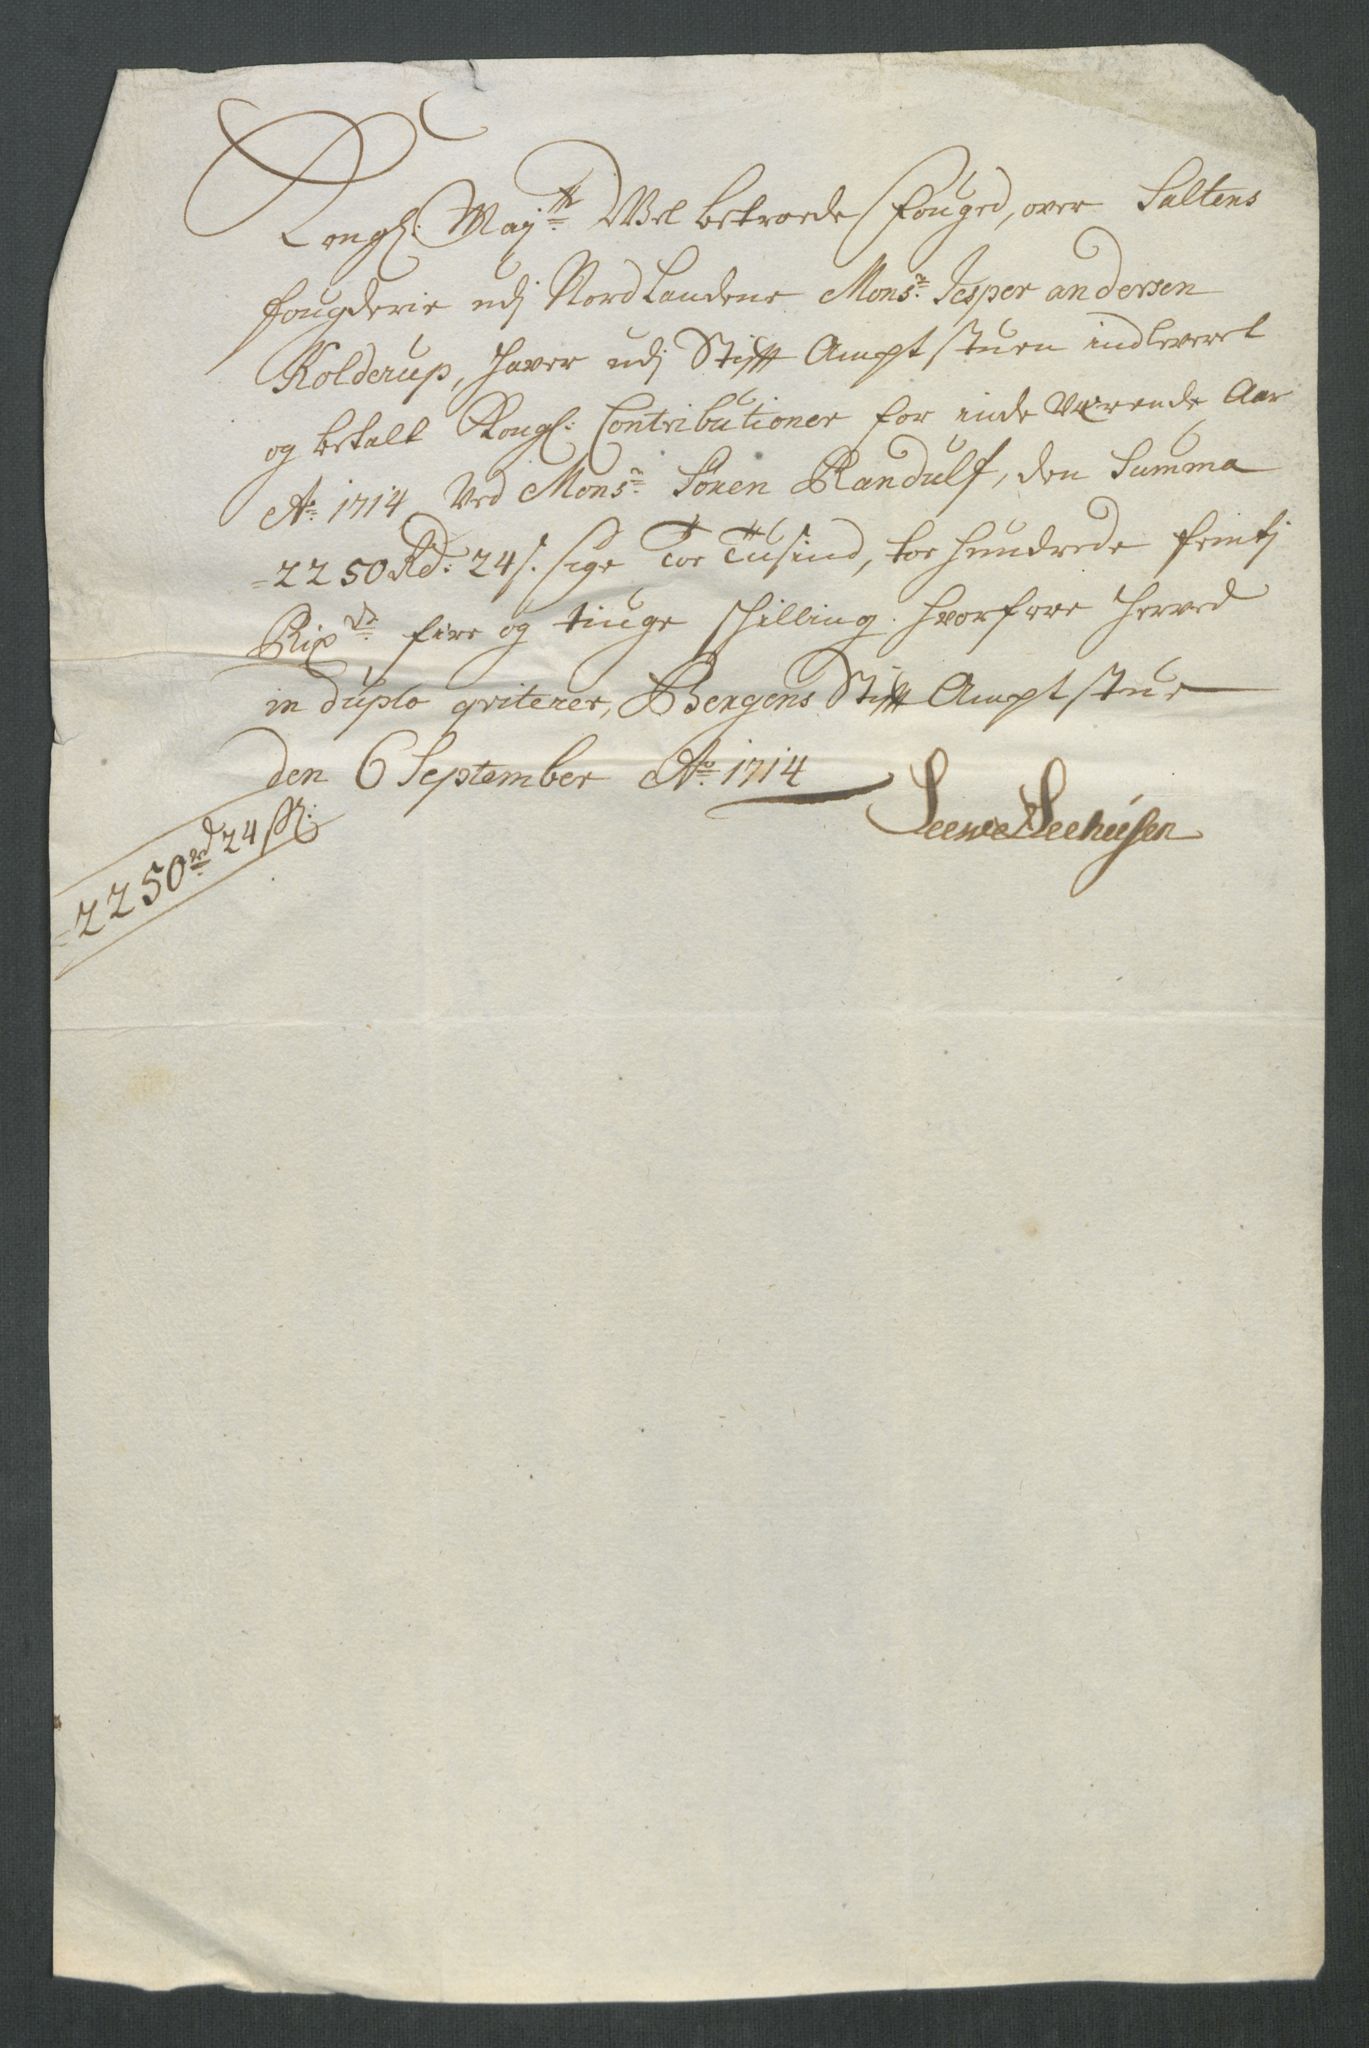 Kongl: Maj:tt Wel betroede Fouged, over Saltens
fougderie udj Nordlandene Mons:r Jesper andersen
Kolderup, haver udj Stifft Ampt stuen indleveret
og betalt Kongl: Contributioner for inde Værende Aar
Ao: 1714 Ved Mons:r Sören Randulf, den Summa
=2250 Rd: 24 s. sige Toe Tusind, toe hundrede femti
Rixdr: fire og tiuge schilling. hvorfore herved
in duplo qviterer, Bergens Stifft Ampt stue
den 6 September Ao: 1714
Seewe Seehusen
=2250 rd 24 sk: